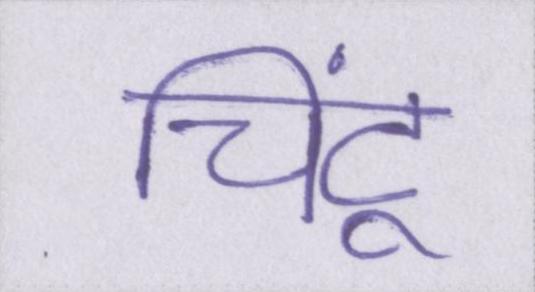 चिंटू